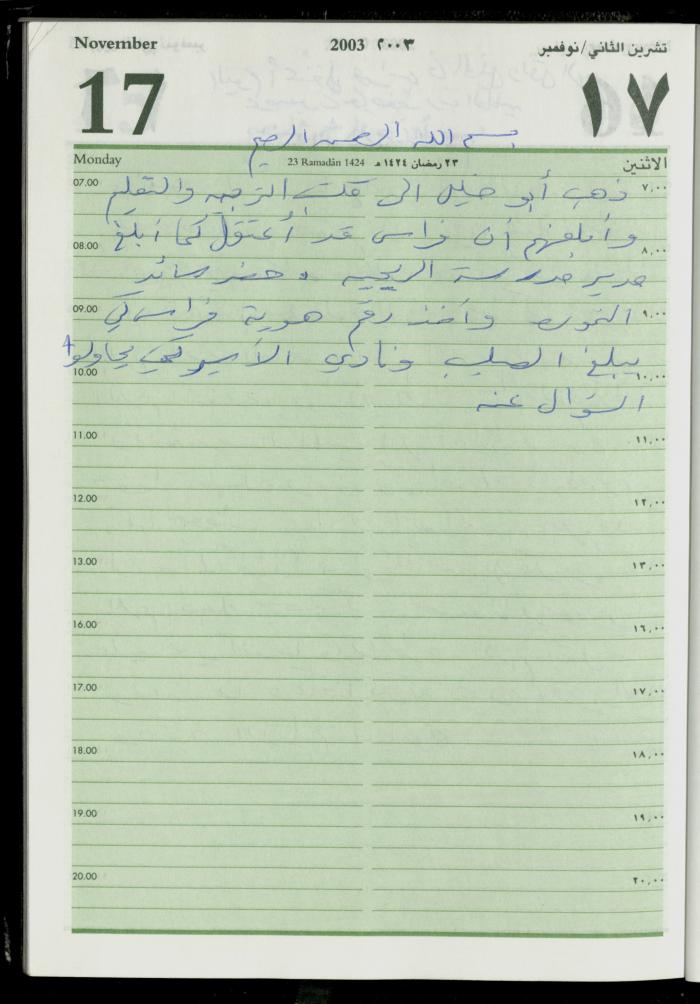 November 2003 ٢٠٠٣ تشرين الثاني/نوفمبر
17 ١٧
بسم الله الرحمن الرحيم
Monday 23 Ramadân 1424 ٢٣ رمضان ١٤٢٤ هـ الاثنين
07.00 ذهب أبو خليل الى مكتب التربيه والتعليم ٧,٠٠
وأبلغهم أن فراس قد أعتقل كما أبلغ
08.00 ٨,٠٠
مدير مدرسة حضر سائد
09.00 وأخذ رقم هوية فراس لكي ٩,٠٠
يبلغ الصليب ونادي الأسير لكي يحاولوا
10.00 ١٠,٠٠
السؤال عنه
11.00 ١١,٠٠
12.00 ١٢,٠٠
13.00 ١٣,٠٠
16.00 ١٦,٠٠
17.00 ١٧,٠٠
18.00 ١٨,٠٠
19.00 ١٩,٠٠
20.00 ٢٠,٠٠